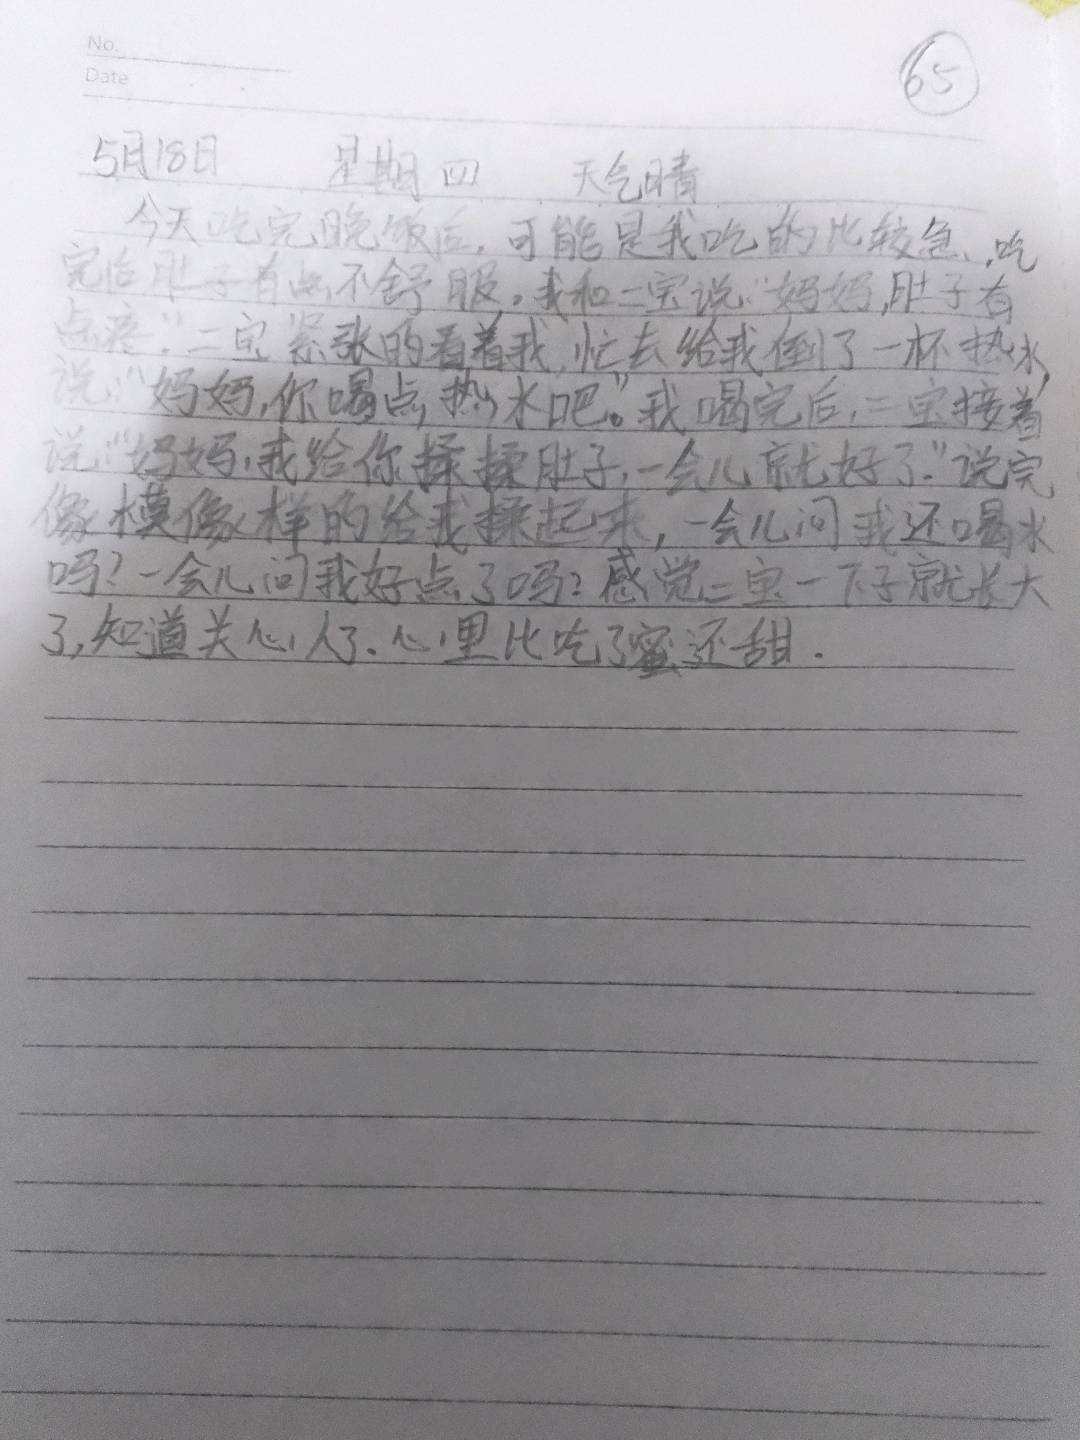 No.
65
Date
5月18日 星期四 天气晴
今天吃完晚饭后,可能是我吃的比较急,吃
完后肚子有点不舒服。我和二宝说:"妈妈,肚子有
点疼。"二宝紧张的看着我,忙去给我倒了一杯热水,
说:"妈妈,你喝点热水吧。"我喝完后,二宝接着
说:"妈妈,我给你揉揉肚子,一会儿就好了。"说完
像模像样的给我揉起来,一会儿问我还喝水
吗?一会儿问我好点了吗?感觉二宝一下子就长大
了,知道关心人了.心里比吃了蜜还甜.